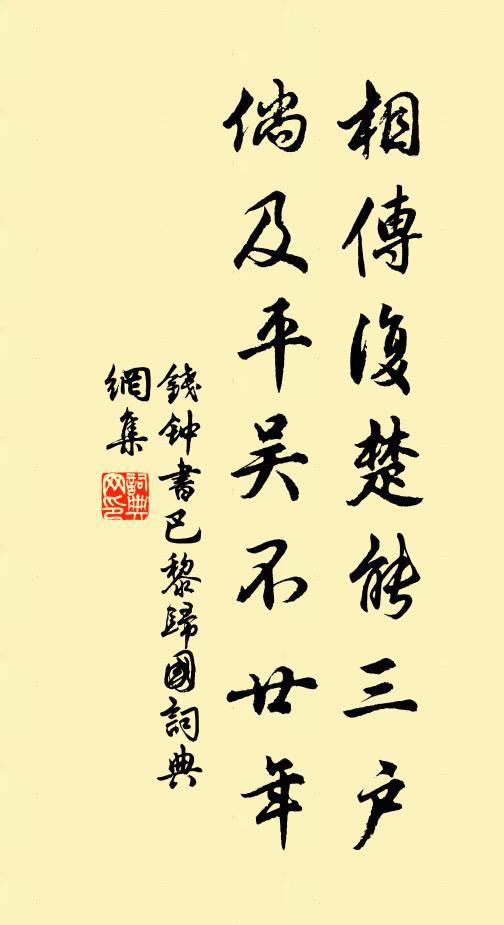 相傳復楚能三户
倘及平吴不廿年
錢钟書巴黎歸國詞典
網集
詞典
网印